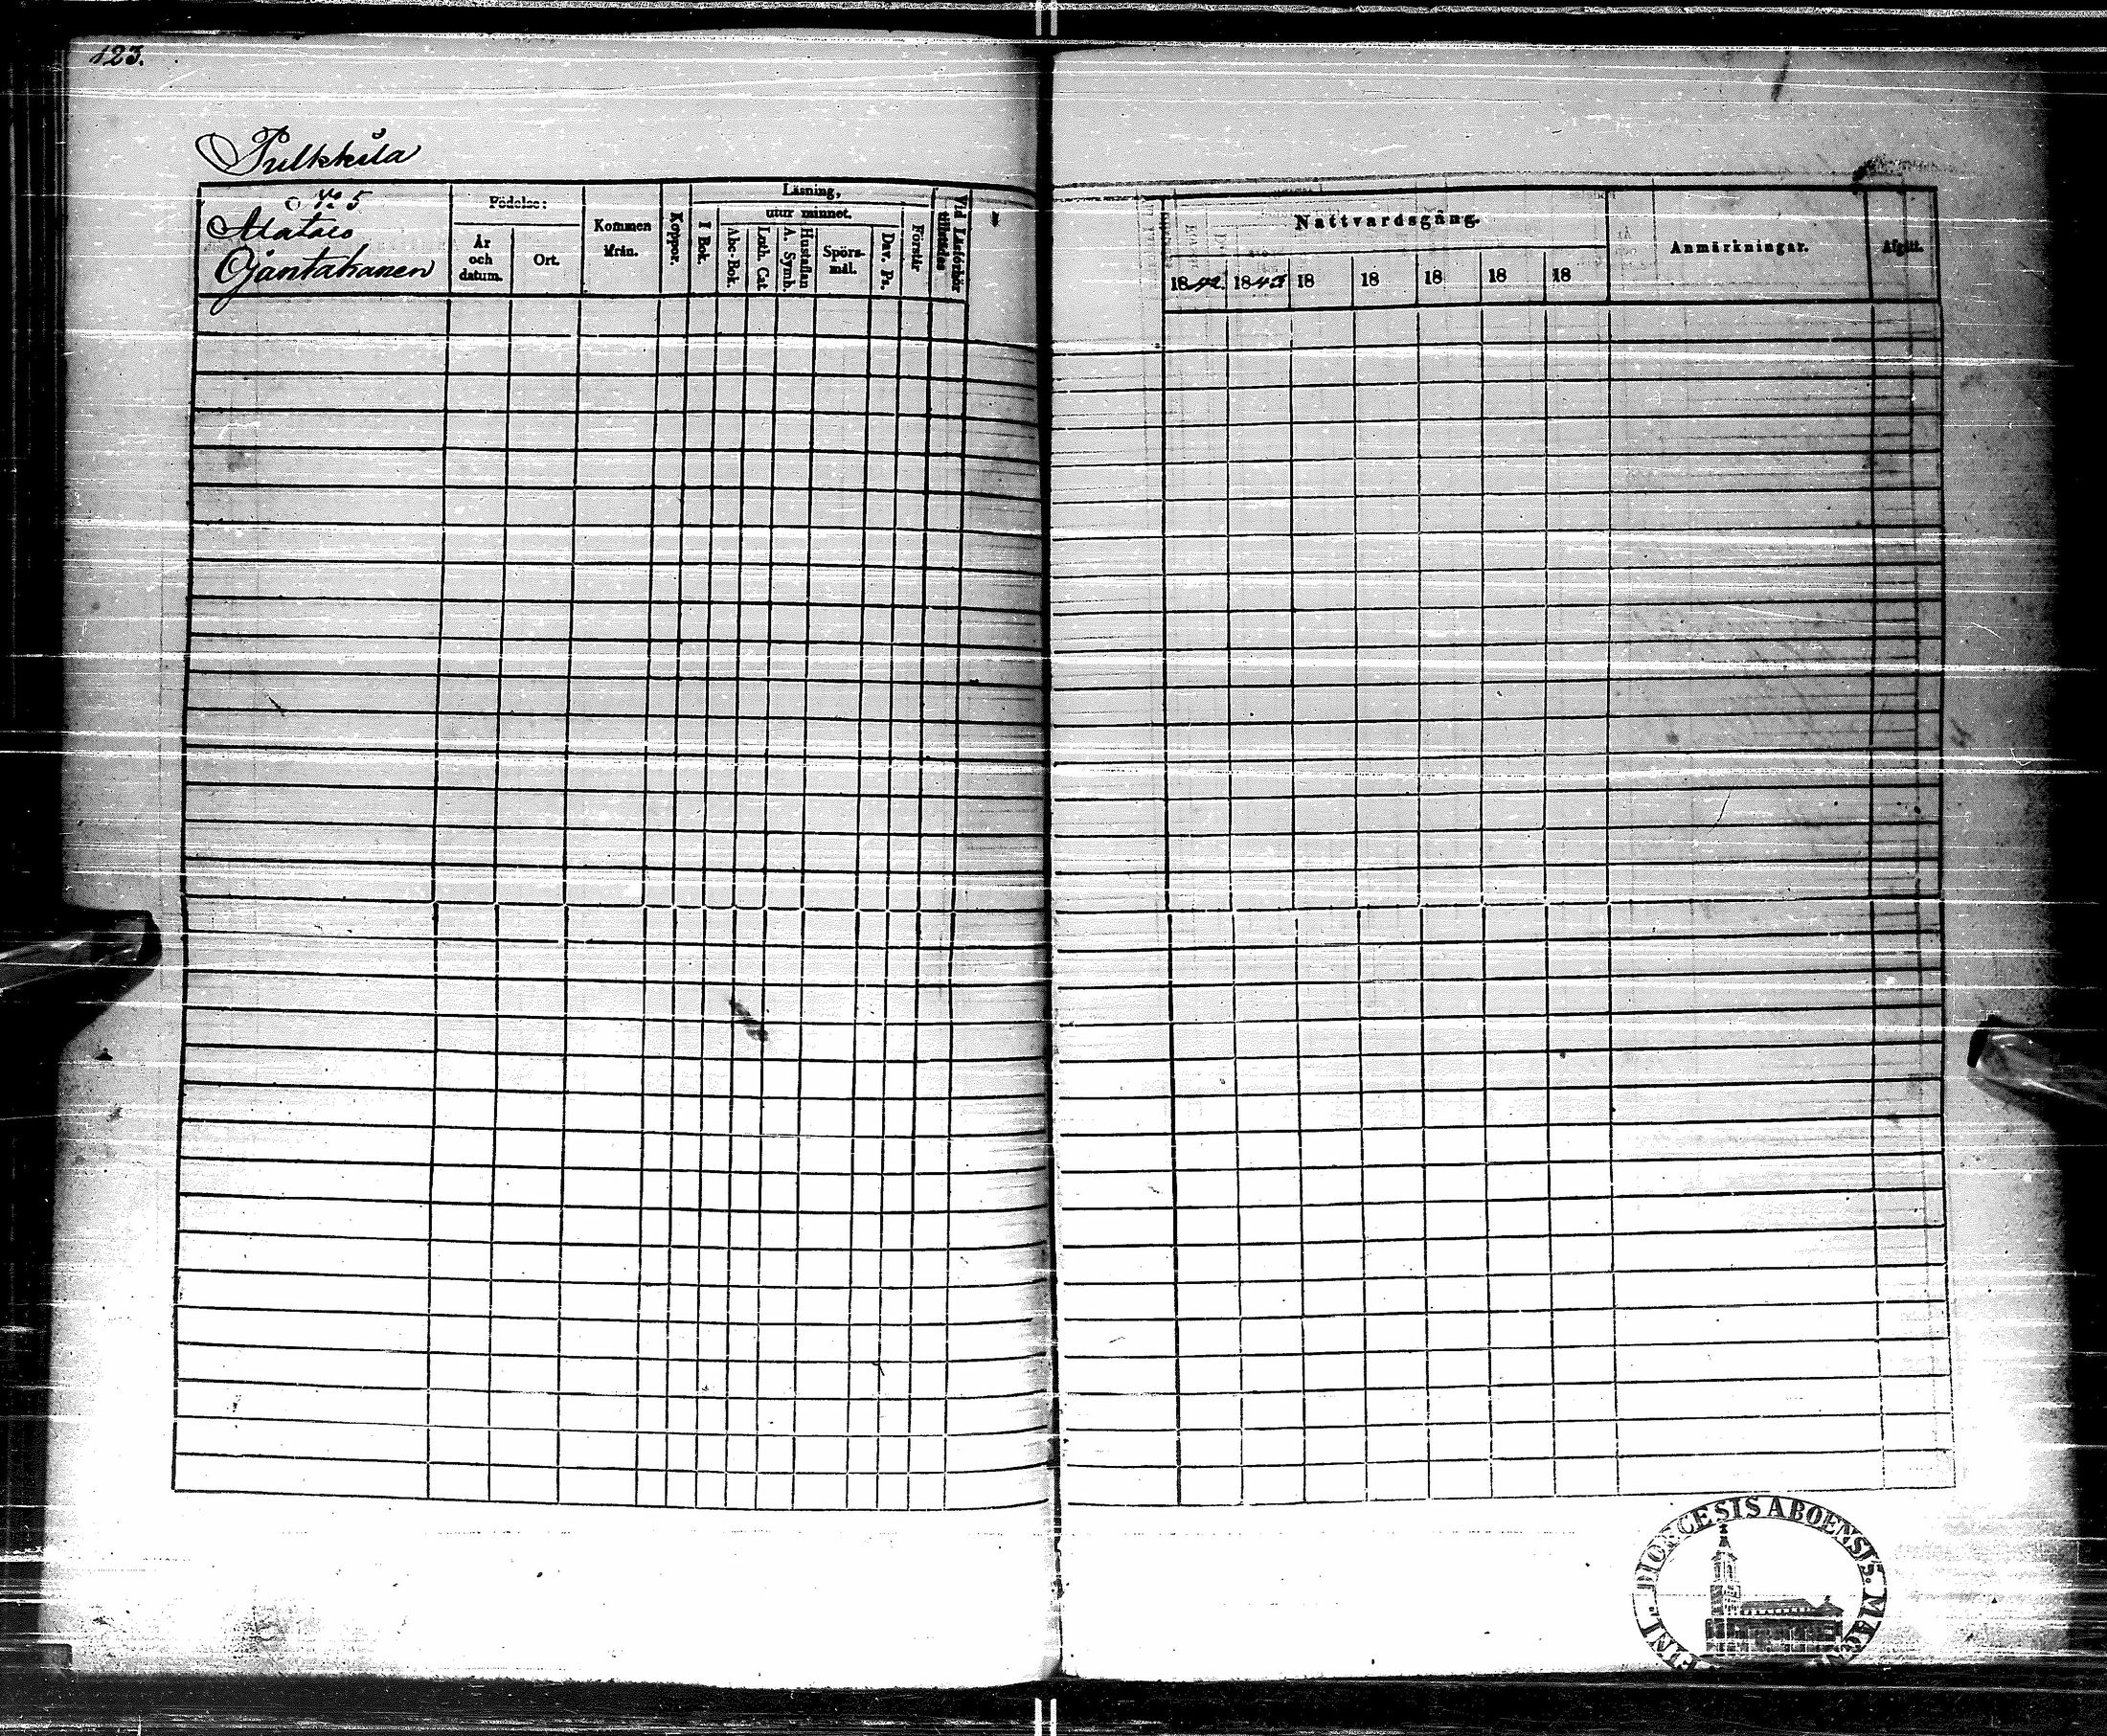 123.
Pulkkila
No 5
Ojantakanen
Födelse:
År
och
datum.
Ort.
Kommen
ifrån.
Koppor.
Läsning,
utur minnet.
I Bok.
Abc Bok.
Luth. Cat
A. Symb.
Hustaflan
Spörs-
mål.
Dav. Ps.
Förstår
Vid Läsförhör
tillstädes
Nattvardsgång.
1842.
1843
18
18
18
18
18
Anmärkningar.
Afgått.
FINL. DIOECESIS ABOENSIS. MAGN